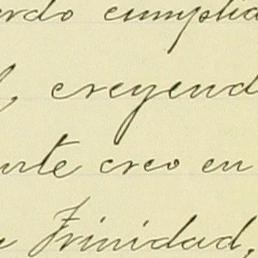 erdo cumplia
l, creyend
nte creo en
e Trinidad,